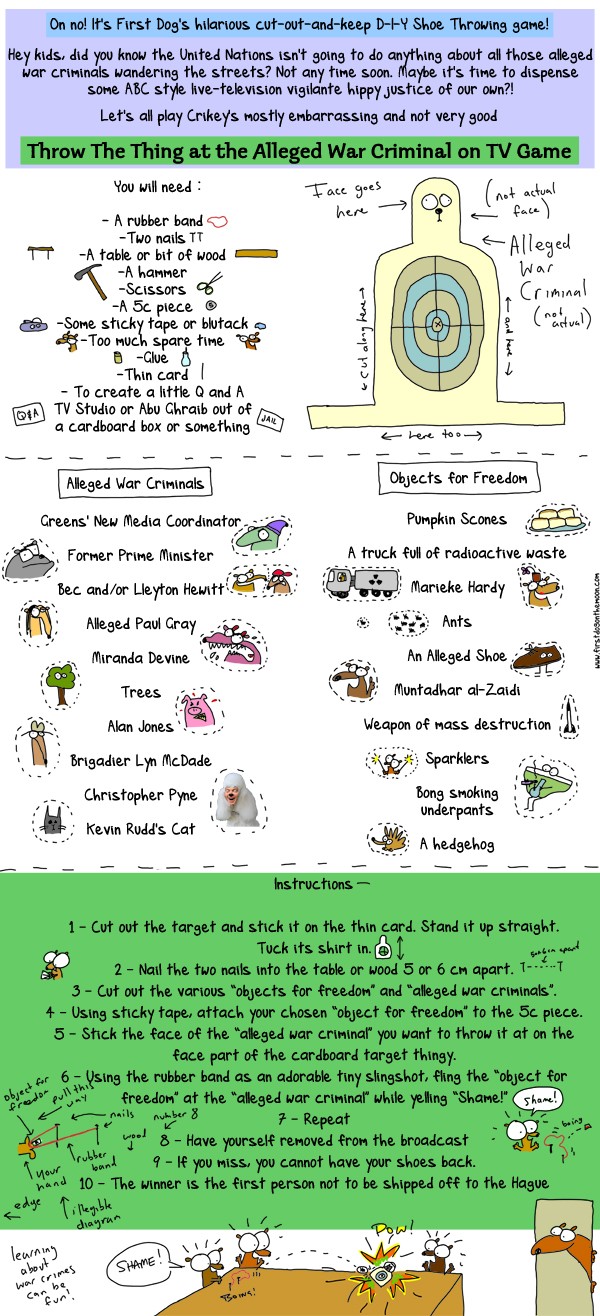 On no! It's First Dog's hilarious cut-out-and-keep D-I-Y Shoe Throwing game!
Hey kids, did you know the United Nations isn't going to do anything about all those alleged
war criminals wandering the streets? Not any time soon. Maybe it's time to dispense
some ABC style live-television vigilante hippy justice of our own?!
Let's all play Crikey's mostly embarrassing and not very good
Throw The Thing at the Alleged War Criminal on TV Game
You will need :
- A rubber band
-Two nails
-A table or bit of wood
-A hammer
-Scissors
-A 5c piece
-Some sticky tape or blutack
-Too much spare time
-Glue
-Thin card
- To create a little Q and A
TV Studio or Abu Ghraib out of
a cardboard box or something
Q&A
JAIL
Face goes
here
(not actual
face)
Alleged
War
Criminal
(not
actual)
cut along here
and here
here too
Alleged War Criminals
Greens' New Media Coordinator
Former Prime Minister
Bec and/or Lleyton Hewitt
Alleged Paul Gray
Miranda Devine
Trees
Alan Jones
Brigadier Lyn McDade
Christopher Pyne
Kevin Rudd's Cat
Objects for Freedom
Pumpkin Scones
A truck full of radioactive waste
Marieke Hardy
Ants
An Alleged Shoe
Muntadhar al-Zaidi
Weapon of mass destruction
Sparklers
Bong smoking
underpants
A hedgehog
www.firstdogonthemoon.com
Instructions —
1 - Cut out the target and stick it on the thin card. Stand it up straight.
Tuck its shirt in.
2 - Nail the two nails into the table or wood 5 or 6 cm apart.
5or6cm apart
3 - Cut out the various "objects for freedom" and "alleged war criminals".
4 - Using sticky tape, attach your chosen "object for freedom" to the 5c piece.
5 - Stick the face of the "alleged war criminal" you want to throw it at on the
face part of the cardboard target thingy.
6 - Using the rubber band as an adorable tiny slingshot, fling the "object for
freedom" at the "alleged war criminal" while yelling "Shame!"
7 - Repeat
8 - Have yourself removed from the broadcast
9 - If you miss, you cannot have your shoes back.
10 - The winner is the first person not to be shipped off to the Hague
object for
freedom
pull this
way
nails
number 8
wood
rubber
band
your
hand
edge
illegible
diagram
Shame!
boing
learning
about
war crimes
can be
fun!
SHAME!
BOING!
POW!